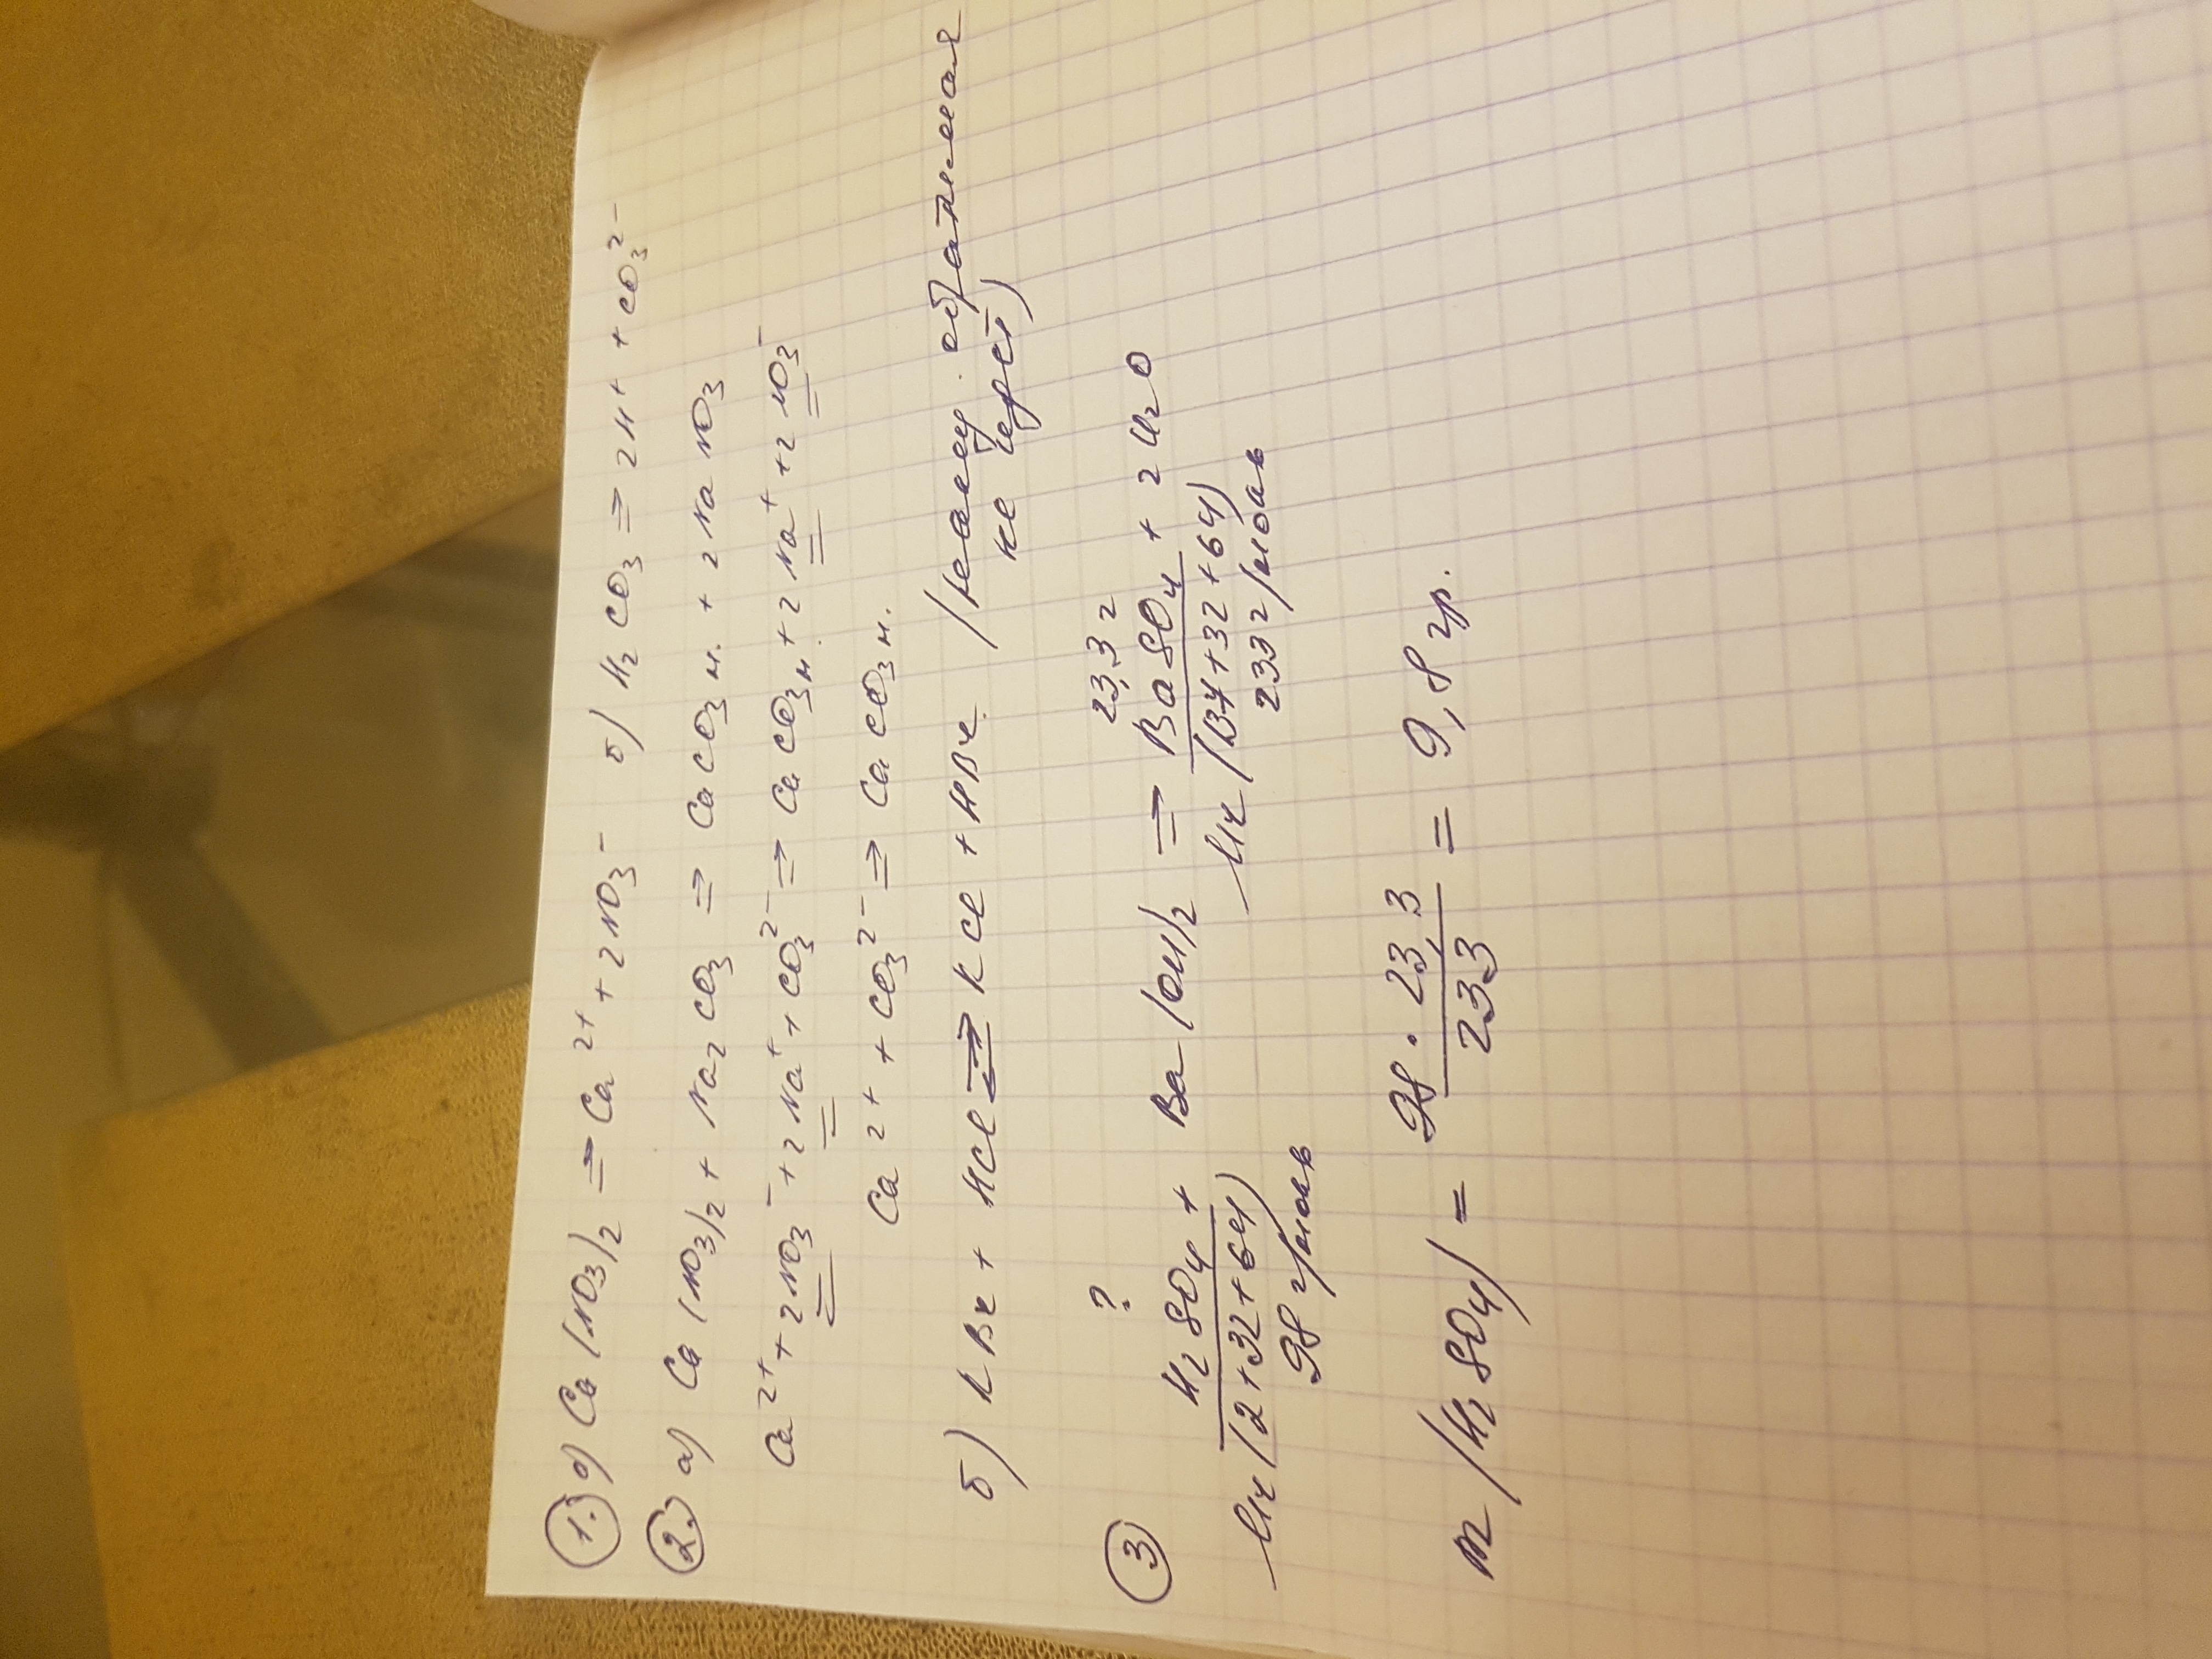 1. а) Ca(NO3)2 = Ca²⁺ + 2NO3⁻ б) H2CO3 ⇒ 2H⁺ + CO3²⁻
2. а) Ca(NO3)2 + Na2CO3 ⇒ CaCO3 н. + 2NaNO3
Ca²⁺ + 2NO3⁻ + 2Na⁺ + CO3²⁻ ⇒ CaCO3 н. + 2Na⁺ + 2NO3⁻
Ca²⁺ + CO3²⁻ ⇒ CaCO3 н.
б) KBr + HCl ⇄ KCl + HBr (реакц. обратимая
не идет)
? 23,3 г
3 H2SO4 + Ba(OH)2 ⇒ BaSO4 + 2H2O
Mr (2+32+64) Mr (137+32+64)
98 г/моль 233 г/моль
m(H2SO4) = 98 · 23,3 / 233 = 9,8 гр.